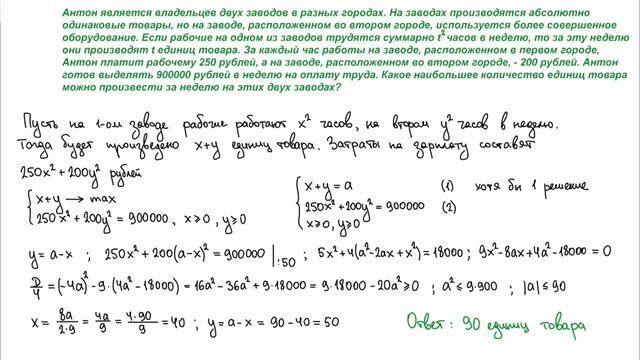 Антон является владельцев двух заводов в разных городах. На заводах производятся абсолютно
одинаковые товары, но на заводе, расположенном во втором городе, используется более совершенное
оборудование. Если рабочие на одном из заводов трудятся суммарно t² часов в неделю, то за эту неделю
они производят t единиц товара. За каждый час работы на заводе, расположенном в первом городе,
Антон платит рабочему 250 рублей, а на заводе, расположенном во втором городе, - 200 рублей. Антон
готов выделять 900000 рублей в неделю на оплату труда. Какое наибольшее количество единиц товара
можно произвести за неделю на этих двух заводах?
Пусть на 1-ом заводе рабочие работают x² часов, на втором y² часов в неделю.
Тогда будет произведено x+y единиц товара. Затраты на зарплату составят
250x²+200y² рублей
{ x+y → max
250x²+200y² = 900000, x≥0, y≥0
{ x+y = a (1) хотя бы 1 решение
250x²+200y² = 900000 (2)
x≥0, y≥0
y = a-x ; 250x²+200(a-x)² = 900000 |:50 ; 5x²+4(a²-2ax+x²) = 18000 ; 9x²-8ax+4a²-18000 = 0
D/4 = (-4a)² - 9·(4a²-18000) = 16a²-36a²+9·18000 = 9·18000-20a² ≥ 0 ; a² ≤ 9·900 ; |a| ≤ 90
x = 8a/2·9 = 4a/9 = 4·90/9 = 40 ; y = a-x = 90-40 = 50
Ответ: 90 единиц товара